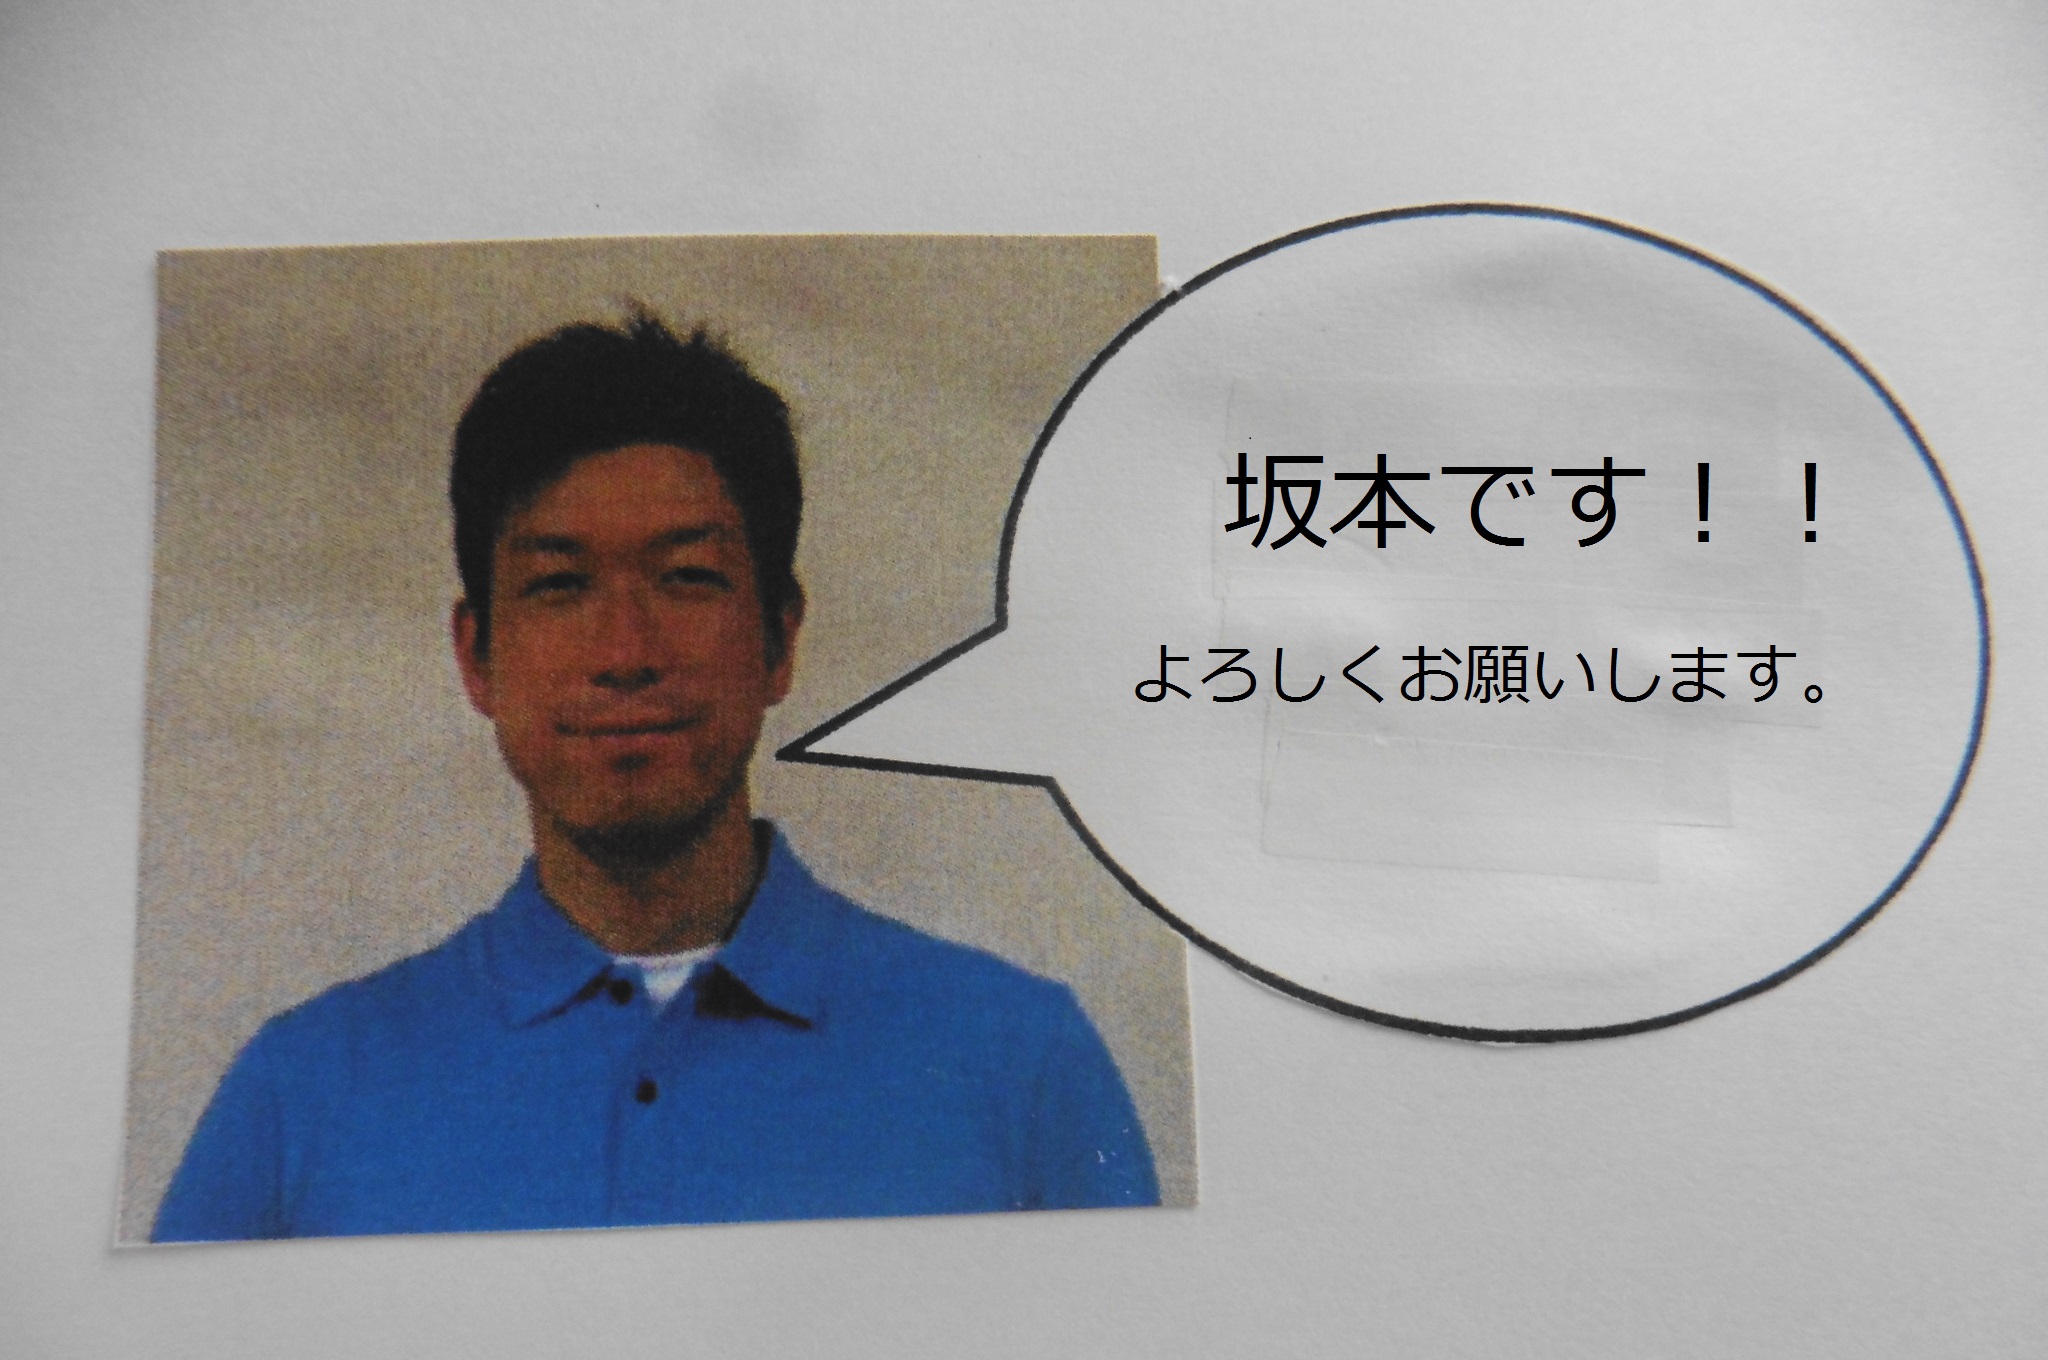 坂本です！！
よろしくお願いします。